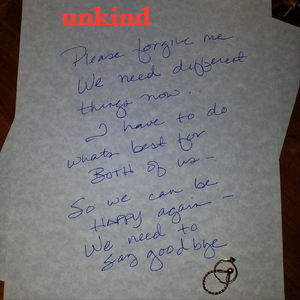 unkind
Please forgive me
We need different
things now.
I have to do
whats best for
BOTH of us -
So we can be
HAPPY again -
We need to
say goodbye